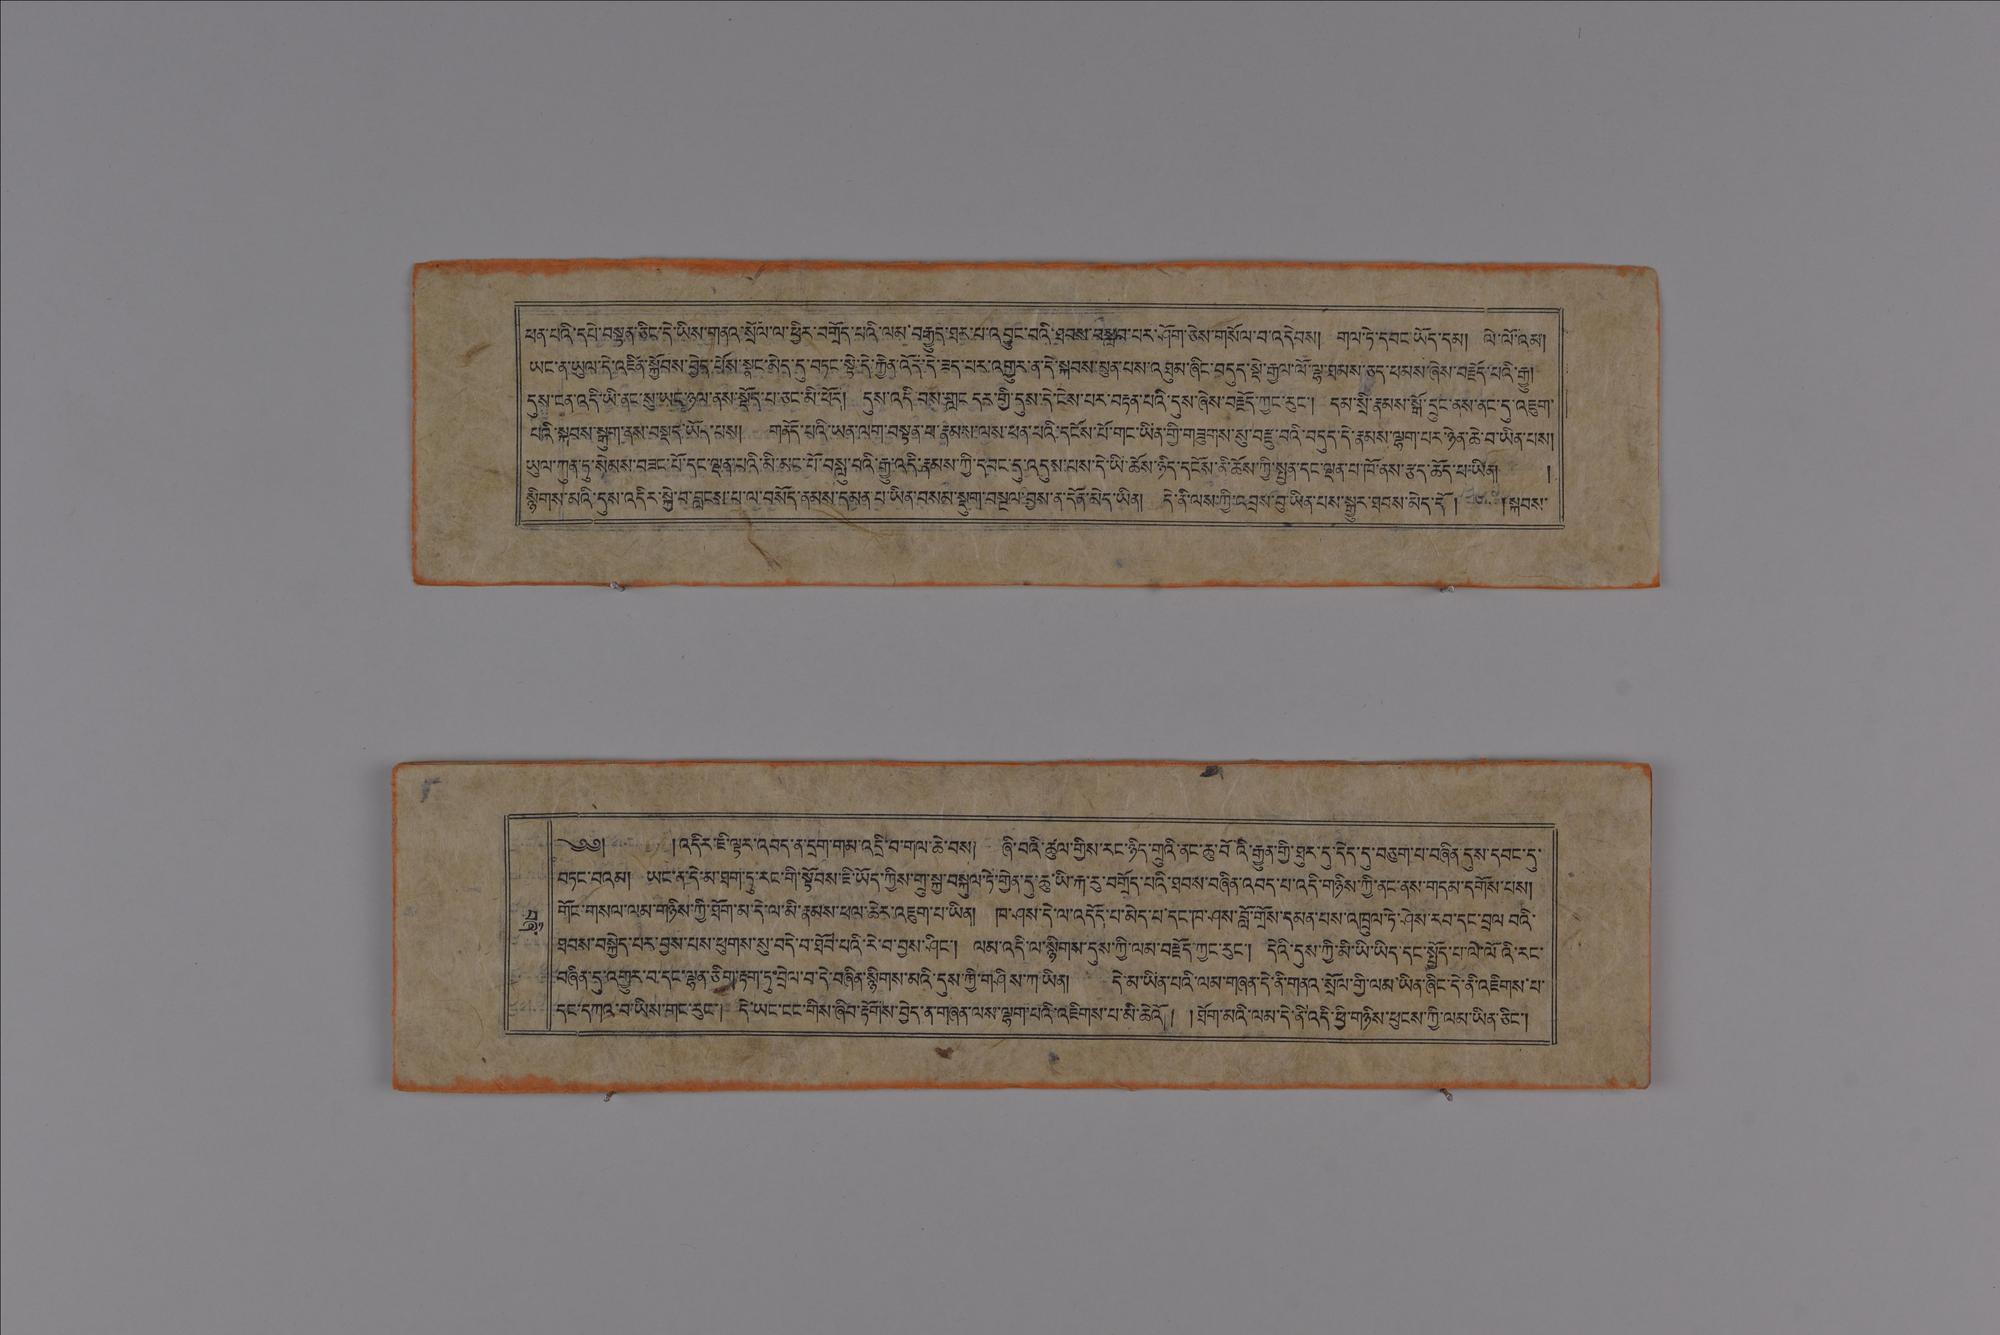 ཕན་པའི་དཔེ་བསྟན་ཅིང་དེ་ཡིས་གནའ་སྲོལ་ལ་ཕྱིར་བགྲོད་པའི་ལམ་བརྒྱུད་ཐར་པ་འབྱུང་བའི་ཐབས་བསླབ་པར་ཤོག་ཅེས་གསོལ་བ་འདེབས། གལ་ཏེ་དབང་ཡོད་དམ། ལེ་ལོ་འམ།
ཡང་ན་ཡུལ་དེ་འཛིན་སྐྱོབས་བྱེད་ སྣང་མེད་དུ་བཏང་སྟེ་དེ་རྐྱེན་འདོད་དེ་ཟད་པར་འགྱུར་ན་དེ་སྐབས་མུན་པས་འཐུམ་ཞིང་བདུད་སྡེ་རྒྱལ་ལོ་ལྷ་ཐམས་ཅད་ཕམས་ཞེས་བརྗོད་པའི་རྒྱུ།
དུས་ངན་འདི་ཡི་ནང་སུ་ཡང་ཉལ་ནས་སྡོད་པ་ཅང་མི་ཕོད། དུས་འདི་བས་གླང་དར་གྱི་དུས་དེ་ངེས་པར་བརྟན་པའི་དུས་ཞེས་བརྗོད་ཀྱང་རུང་། དམ་སྲི་རྣམས་སྒོ་དྲུང་ནས་ནང་དུ་འཇུག་
པའི་སྐབས་སྒུག་ནས་བསྡད་ཡོད་པས། གནོད་པའི་ཡན་ལག་བསྟན་པ་རྣམས་ལས་ཕན་པའི་དངོས་པོ་གང་ཡིན་གྱི་གཟུགས་སུ་བརྫུ་བའི་བདུད་དེ་རྣམས་ལྷག་པར་ཉེན་ཆེ་བ་ཡིན་པས།
ཡུལ་ཀུན་ཏུ་སེམས་བཟང་པོ་དང་ལྡན་པའི་མི་མང་པོ་བསླུ་བའི་རྒྱུ་འདི་རྣམས་ཀྱི་དབང་དུ་འདུས་པས་དེ་ཡི་ཆོས་ཉིད་དངོས་ནི་ཆོས་ཀྱི་སྤྱན་དང་ལྡན་པ་ཁོ་ནས་རྩད་ཆོད་པ་ཡིན། །
སྙིགས་མའི་དུས་འདིར་སྐྱེ་བ་བླངས་པ་ལ་བསོད་ནམས་དམན་པ་ཡིན་བསམ་སྡུག་བསྔལ་བྱས་ན་དོན་མེད་ཡིན། དེ་ནི་ལས་ཀྱི་འབྲས་བུ་ཡིན་པས་སྒྱུར་ཐབས་མེད་དོ། ། སྐབས་
༄༅། །འདིར་ཇི་ལྟར་འབད་ན་དྲག་གམ་འདྲི་བ་གལ་ཆེ་བས། ཞི་བའི་ཚུལ་གྱིས་རང་ཉིད་གྲུའི་ནང་ཆུ་བོ་འི་རྒྱུན་གྱི་ཐུར་དུ་དེད་དུ་བཅུག་པ་བཞིན་དུས་དབང་དུ་
བཏང་བའམ། ཡང་ན་དེ་མ་ཐག་ཏུ་རང་གི་སྟོབས་ཇི་ཡོད་ཀྱིས་གྲུ་སྐྱ་བསྐུལ་ཏེ་གྱེན་དུ་ཆུ་ཡི་རྐ་རུ་བགྲོད་པའི་ཐབས་བཞིན་འབད་པ་འདི་གཉིས་ཀྱི་ནང་ནས་གདམ་དགོས་པས།
གོང་གསལ་ལམ་གཉིས་ཀྱི་ཐོག་མ་དེ་ལ་མི་རྣམས་ཕལ་ཆེར་འཇུག་པ་ཡིན། ཁ་ཤས་དེ་ལ་འདོད་པ་མེད་པ་དང་ཁ་ཤས་བློ་གྲོས་དམན་པས་འཁྲུལ་ཏེ་ཤེས་རབ་དང་བྲལ་བའི་
ཐབས་བསྐྱེད་པར་བྱས་པས་ཕུགས་སུ་བདེ་བ་ཐོབ་པའི་རེ་བ་བྱས་ཤིང་། ལམ་འདི་ལ་སྙིགས་དུས་ཀྱི་ལམ་བརྗོད་ཀྱང་རུང་། དེའི་དུས་ཀྱི་མི་ཡི་ཡིད་དང་སྤྱོད་པ་ལེ་ལོ་འི་རང་
བཞིན་དུ་འགྱུར་བ་དང་ལྷན་ཅིག་རྟག་ཏུ་བྲེལ་བ་དེ་བཞིན་སྙིགས་མའི་དུས་ཀྱི་གཤིས་ཀ་ཡིན། དེ་མ་ཡིན་པའི་ལམ་གཞན་དེ་ནི་གནའ་སྲོལ་གྱི་ལམ་ཡིན་ཞིང་དེ་ནི་འཇིགས་པ་
དང་དཀའ་བ་ཡིས་གང་རུང་། དེ་ཡང་ངང་གིས་ཞིབ་རྟོགས་བྱེད་ན་གཞན་ལས་ལྷག་པའི་འཇིགས་པ་མི་ཆེའོ། ། ཐོག་མའི་ལམ་དེ་ནི་འདི་ཕྱི་གཉིས་ཕུངས་ཀྱི་ལམ་ཡིན་ཅིང་།